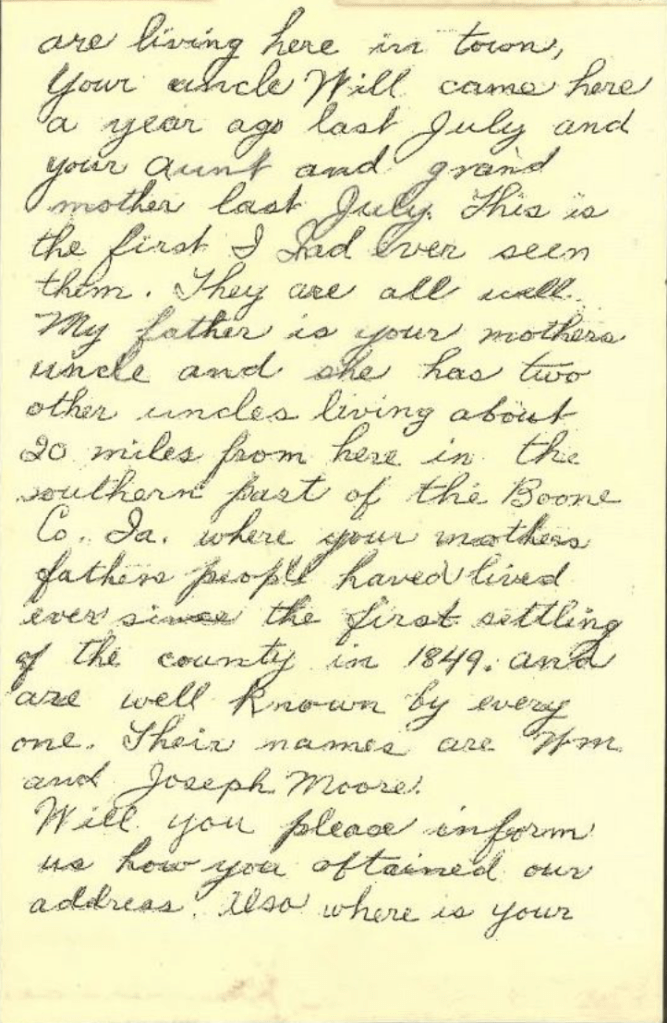 are living here in town,
Your uncle Will came here
a year ago last July and
your aunt and grand
mother last July. This is
the first I had ever seen
them. They are all well.
My father is your mothers
uncle and she has two
other uncles living about
20 miles from here in the
southern part of the Boone
Co. Ia. where your mothers
fathers people haved lived
ever since the first settling
of the county in 1849. and
are well known by every
one. Their names are Wm
and Joseph Moore.
Will you please inform
us how you oftained our
address. Also where is your